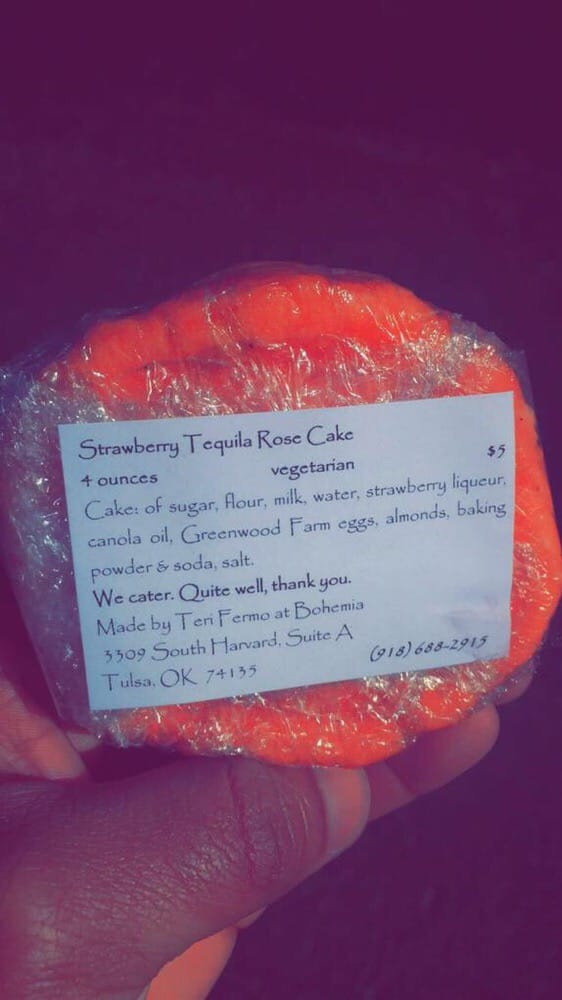 Strawberry Tequila Rose Cake
4 ounces vegetarian $5
Cake: of sugar, flour, milk, water, strawberry liqueur,
canola oil, Greenwood Farm eggs, almonds, baking
powder & soda, salt.
We cater. Quite well, thank you.
Made by Teri Fermo at Bohemia
3309 South Harvard, Suite A
Tulsa, OK 74135 (918) 688-2915